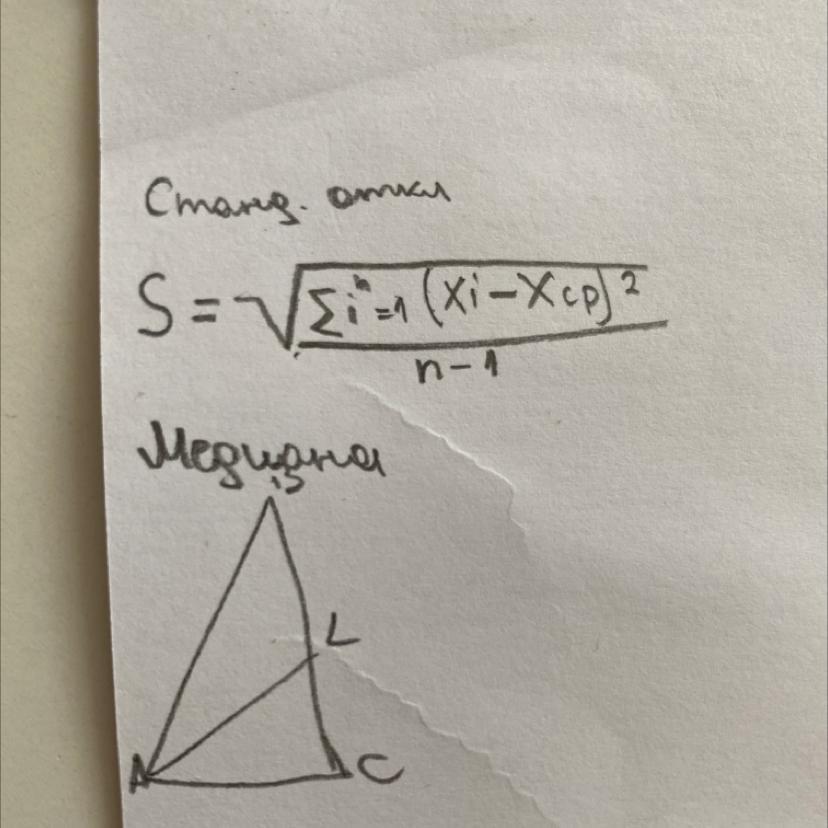 Станд. откл
S = √ Σi^n=1 (Xi - Xср)² / n - 1
Медиана
B
L
A C